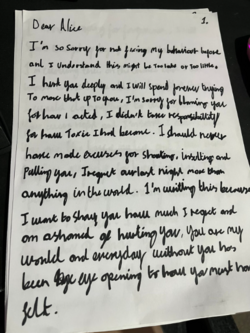 1.
Dear Alice
I'm so sorry for not facing my behaviour before
and I understand this might be too late or too little.
I hurt you deeply and I will spend forever trying
to make that up to you, I'm sorry for blaming you
for how I acted, I didn't take responsibility
for how Toxic I had become. I should never
have made excuses for shouting, insulting and
pulling you, I regret our last night more than
anything in the world. I'm writing this because
I want to show you how much I regret and
am ashamed of hurting you, you are my
world and everyday without you has
been eye opening to how you must have
felt.